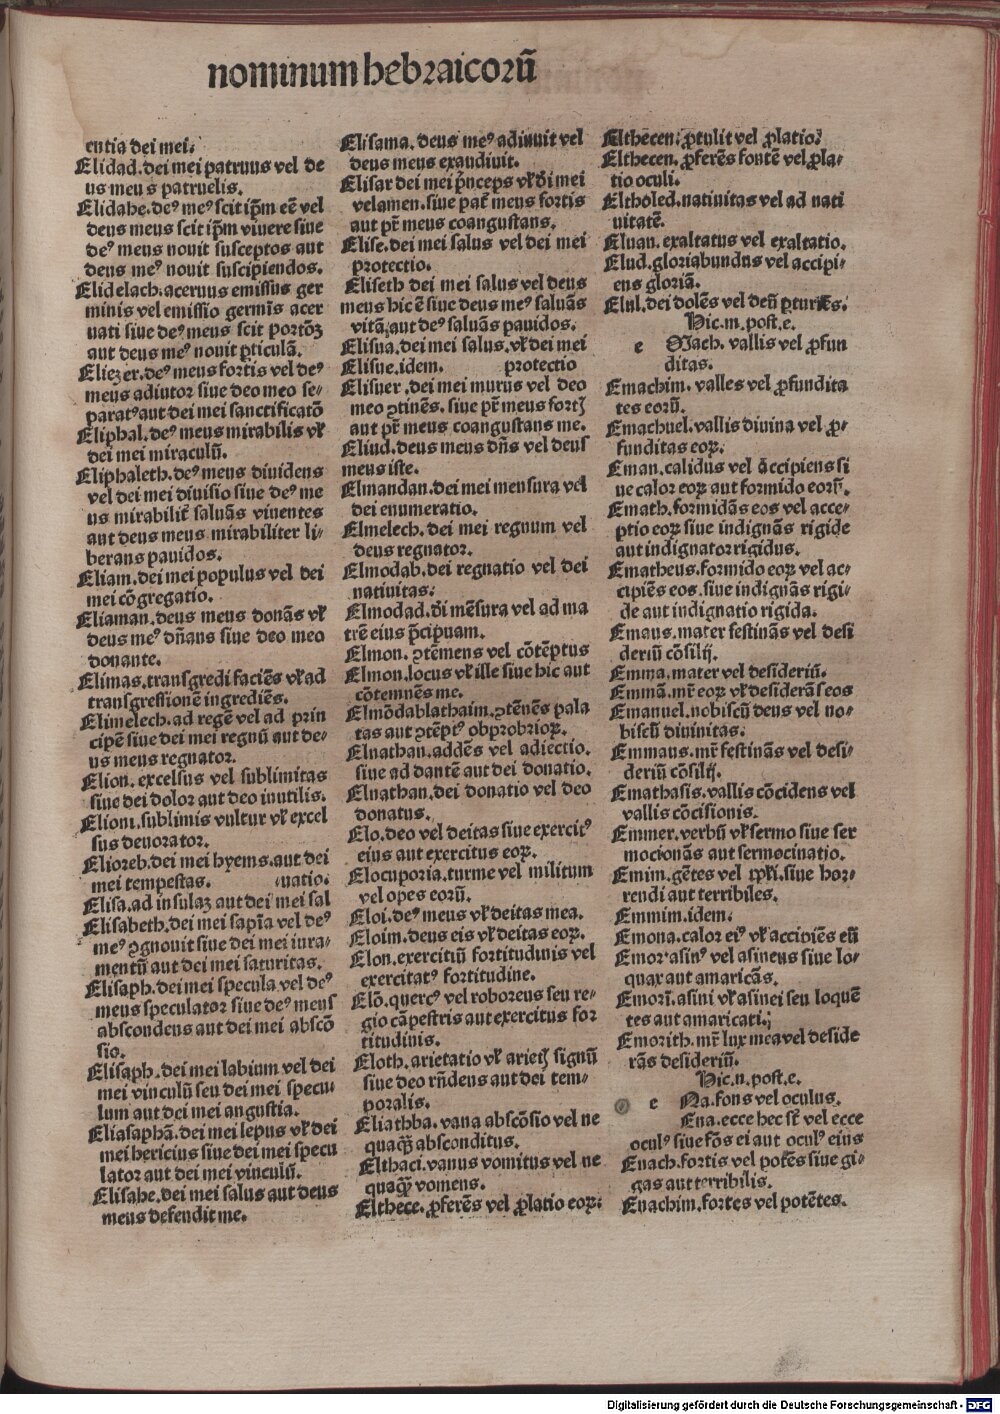 nominum hebraicorū
entia dei mei.
Elidad.dei mei patruus vel de
us meus patruelis.
Elidahe.deꝰ meꝰ scit ip̄m eē vel
deus meus scit ip̄m viuere siue
deꝰ meus nouit susceptos aut
deus meꝰ nouit suscipiendos.
Elidelach.aceruus emissus ger
minis vel emissio germīs acer
uati siue deꝰ meus scit
aut deus meꝰ nouit ꝑticulā.
Eliezer.deꝰ meus fortis vel deꝰ
meus adiutor siue deo meo se-
paratꝰ aut dei mei sanctificatō
Eliphal.deꝰ meus mirabilis vl̓
dei mei miraculū.
Eliphaleth.deꝰ meus diuidens
vel dei mei diuisio siue deꝰ me
us mirabilit̓ saluās viuentes
aut deus meus mirabiliter li-
berans pauidos.
Eliam.dei mei populus vel dei
mei cōgregatio.
Eliaman.deus meus donās vl̓
deus meꝰ dn̄ans siue deo meo
donante.
Elimas.transgredi faciēs vl̓ ad
transgressionē ingrediēs.
Elimelech.ad regē vel ad prin
cipē siue dei mei regnū aut de-
us meus regnator.
Elion.excelsus vel sublimitas
siue dei dolor aut deo inutilis.
Elioni.sublimis vultur vl̓ excel
sus deuorator.
Elioreb.dei mei hyems.aut dei
mei tempestas. ‹uatio.
Elisa.ad insulaꝫ aut dei mei sal
Elisabeth.dei mei sapīa vel deꝰ
meꝰ ꝯgnouit siue dei mei iura-
mentū aut dei mei saturitas.
Elisaph.dei mei specula vel deꝰ
meus speculator siue deꝰ meus
abscondens aut dei mei abscō
sio.
Elisaph.dei mei labium vel dei
mei vinculū seu dei mei specu-
lum aut dei mei angustia.
Eliasaphā.dei mei lepus vl̓ dei
mei hericius siue dei mei specu
lator aut dei mei vinculū.
Elisahe.dei mei salus aut deus
meus defendit me.
Elisama.deus meꝰ adiuuit vel
deus meus exaudiuit.
Elisar dei mei p̄nceps vl̓ dī mei
velamen.siue pat̓ meus fortis
aut pr̄ meus coangustans.
Elise.dei mei salus vel dei mei
protectio.
Eliseth dei mei salus vel deus
meus hic ē siue deus meꝰ saluās
vitā;aut deꝰ saluās pauidos.
Elisua.dei mei salus.vl̓ dei mei
Elisue.idem. protectio
Elisuer.dei mei murus vel deo
meo ꝯtinēs.siue pr̄ meus fort̓
aut pr̄ meus coangustans me.
Eliud.deus meus dn̄s vel deus
meus iste.
Elmandan.dei mei mensura vel
dei enumeratio.
Elmelech.dei mei regnum vel
deus regnator.
Elmodab.dei regnatio vel dei
natiuitas.
Elmodad.dī mēsura vel ad ma
trē eius p̄cipuam.
Elmon.ꝯtēmens vel cōtēptus
Elmon.locus vl̓ ille siue hic aut
cōtemnēs me.
Elmōdablathaim.ꝯtēnēs pala
tas aut ꝯtēptꝰ obprobrioꝝ.
Elnathan.addēs vel adiectio.
siue ad dantē aut dei donatio.
Elnathan.dei donatio vel deo
donatus.
Elo.deo vel deitas siue exercitꝰ
eius aut exercitus eoꝝ.
Elocuporia.turme vel militum
vel opes eorū.
Eloi.deꝰ meus vl̓ deitas mea.
Eloim.deus eis vl̓ deitas eoꝝ.
Elon.exercitiū fortitudinis vel
exercitatꝰ fortitudine.
Elō.quercꝰ vel roboreus seu re-
gio cāpestris aut exercitus for
titudinis.
Eloth.arietatio vl̓ signū
siue deo rn̄dens aut dei tem-
poralis.
Eliathba.vana abscōsio vel ne
quaꝗ̄ absconditus.
Elthaci.vanus vomitus vel ne
quaꝗ̄ vomens.
Elthece.ꝓferēs vel ꝓlatio eoꝝ.
Elthecen.ꝓtulit vel ꝓlatio.
Elthecen.ꝓferēs fontē vel ꝓla-
tio oculi.
Eltholed.natiuitas vel ad nati
uitatē.
Eluan.exaltatus vel exaltatio.
Elud.gloriabundus vel accipi-
ens gloriā.
Elul.dei dolēs vel
Hic.m.post.e.
e Mach.vallis vel ꝓfun
ditas.
Emachim.valles vel ꝓfundita
tes eorū.
Emachuel.vallis diuina vel ꝓ-
funditas eoꝝ.
Eman.calidus vel accipiens si
ue calor eoꝝ aut formido eorū.
Emath.formidās eos vel acce-
ptio eoꝝ siue indignās rigide
aut indignator rigidus.
Ematheus.formido eoꝝ vel ac-
cipiēs eos.siue indignās rigi-
de aut indignatio rigida.
Emaus.mater festinās vel desi
deriū cōsilij.
Emma.mater vel desideriū.
Emmā.mr̄ eoꝝ vl̓ desiderās eos
Emanuel.nobiscū deus vel no-
biscū diuinitas.
Emmaus.mr̄ festinās vel desi-
deriū cōsilij.
Emathasis.vallis cōcidens vel
vallis cōcisionis.
Emmer.verbū vl̓ sermo siue ser
mocionās aut sermocinatio.
Emim.gētes vel ppl̓i.siue hor-
rendi aut terribiles.
Emmim.idem.
Emona.calor eiꝰ vl̓ accipiēs eū
Emor.asinꝰ vel asineus siue lo-
quax aut amaricās.
Emorī.asini vl̓ asinei seu loquē
tes aut amaricati.
Emorith.mr̄ lux mea vel deside
rās desideriū.
Hic.n.post.e.
e Na.fons vel oculus.
Ena.ecce hec st̄ vel ecce
oculꝰ siue fōs ei aut oculꝰ eius
Enach.fortis vel potēs siue gi-
gas aut terribilis.
Enachim.fortes vel potētes.
Digitalisierung gefördert durch die Deutsche Forschungsgemeinschaft - DFG